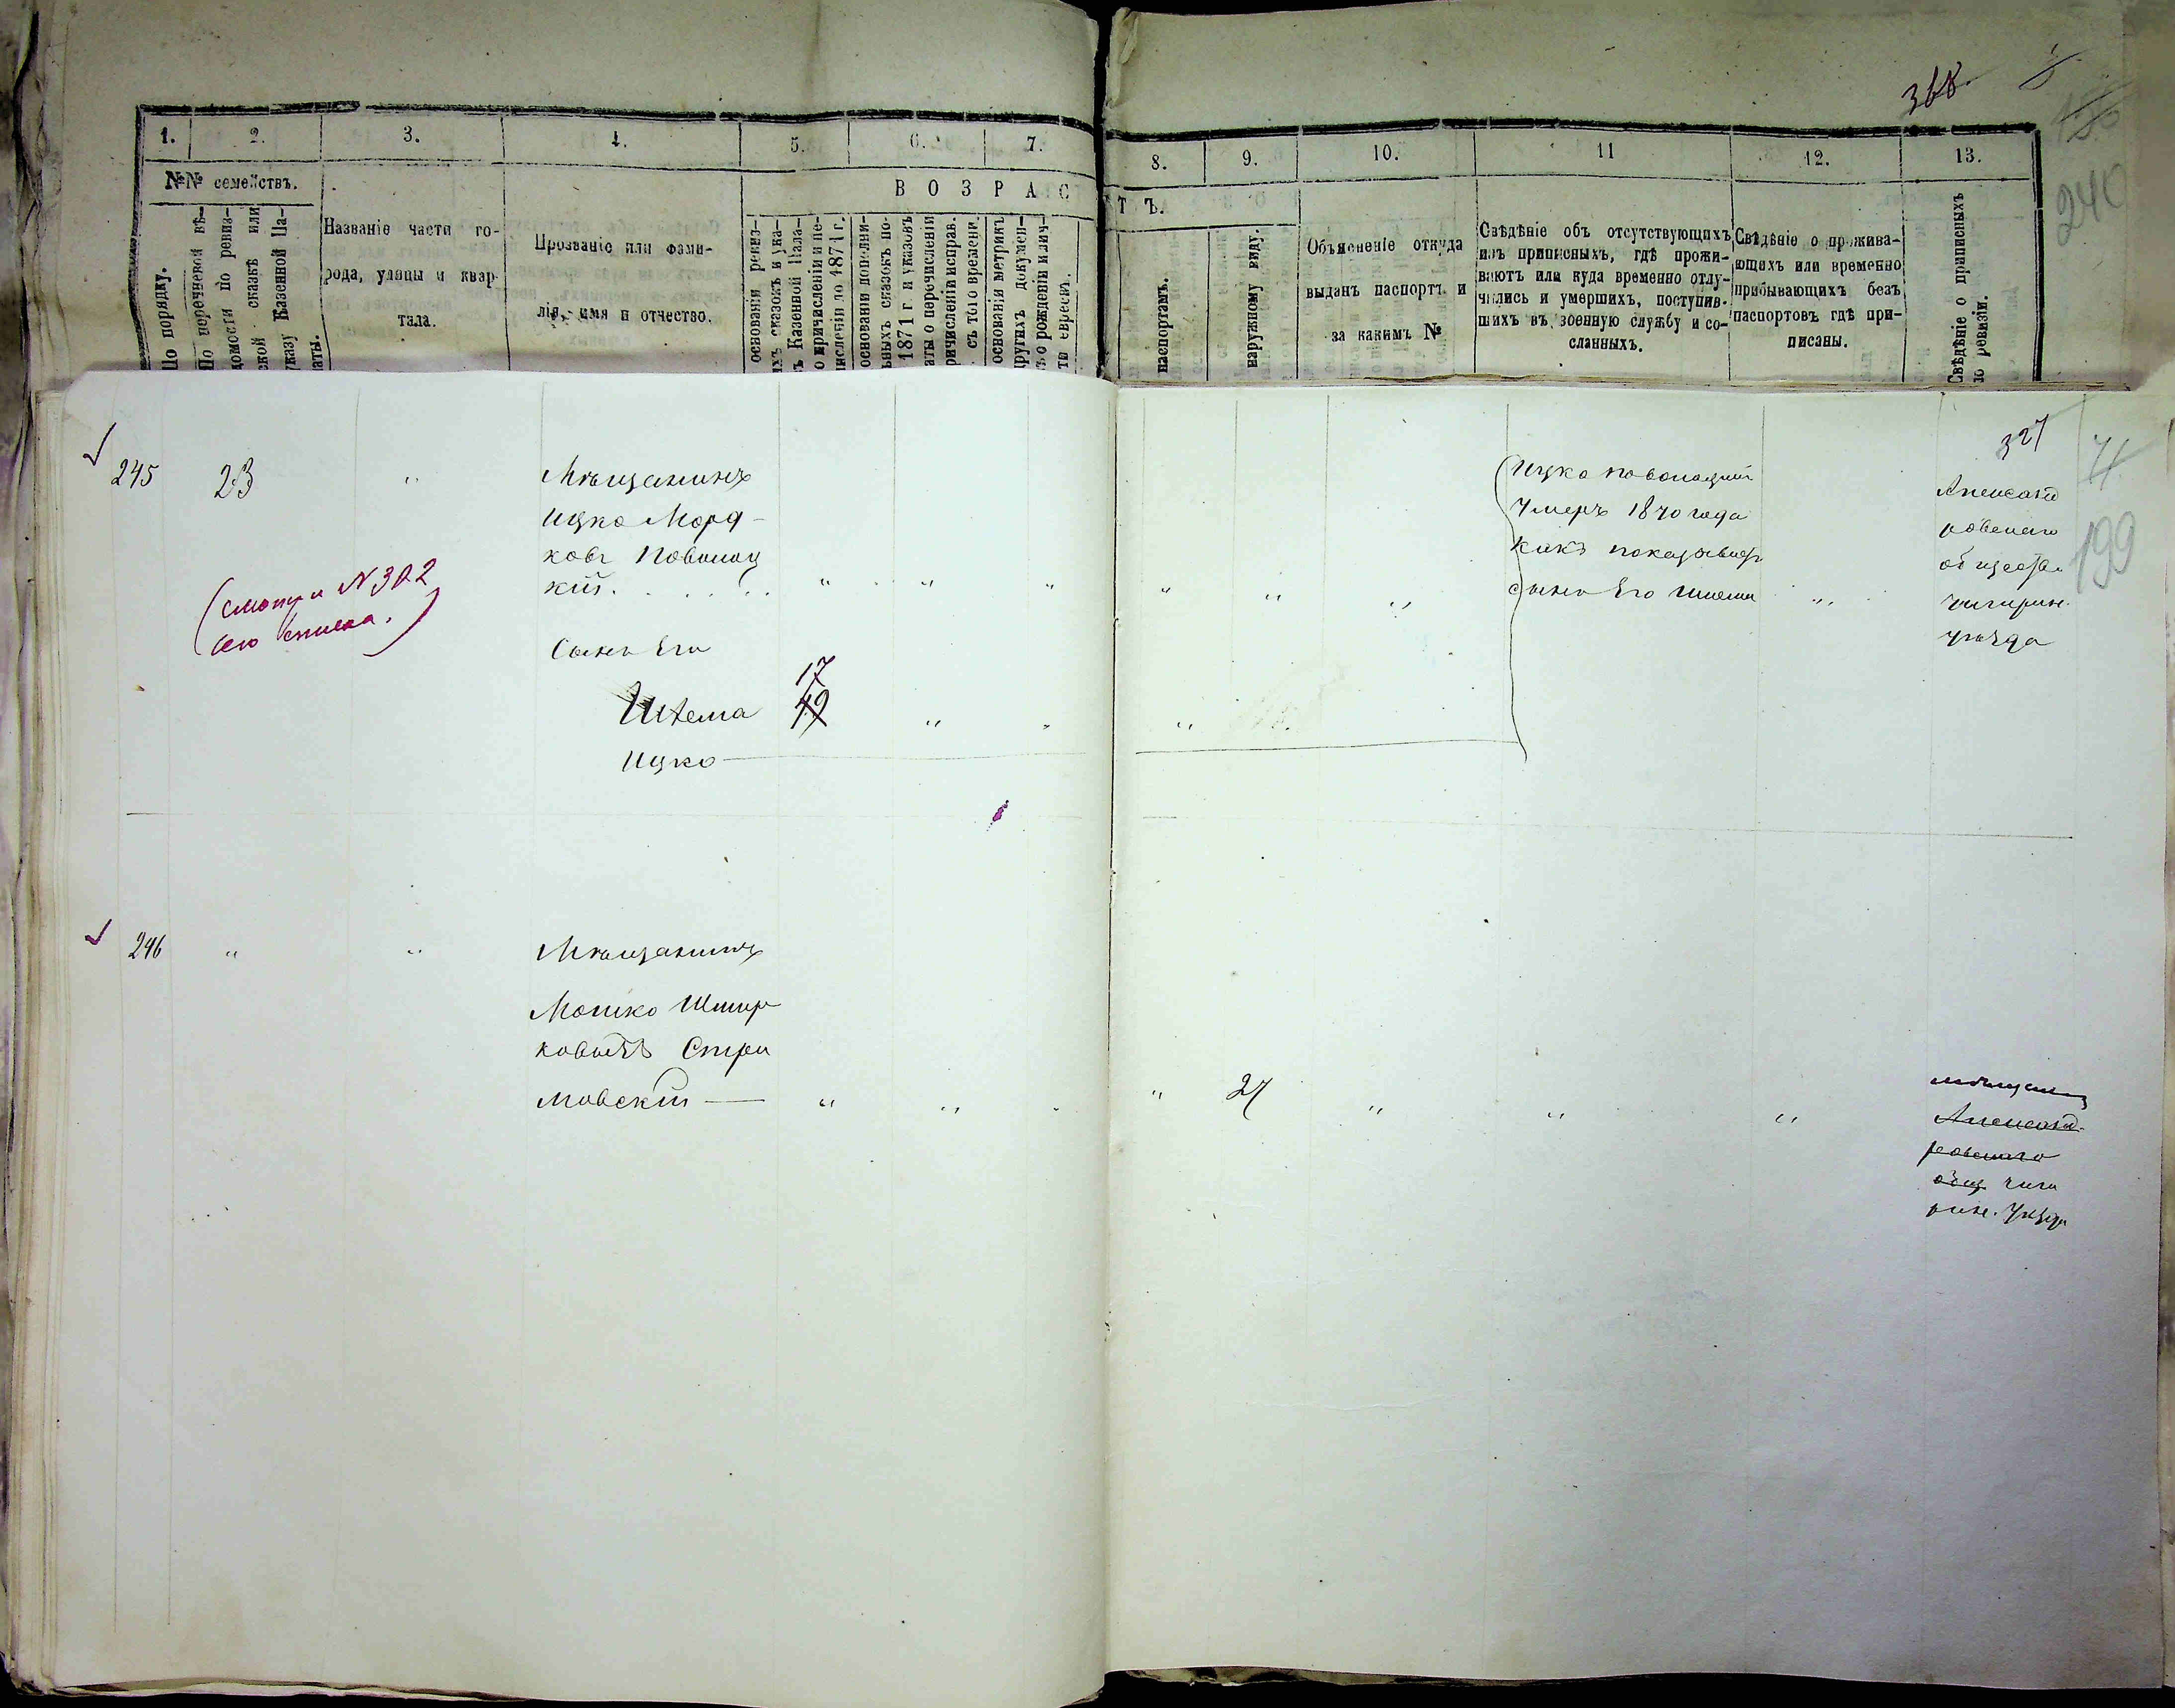 368.
240
1. 2. 3. 4. 5. 6. 7. 8. 9. 10. 11 12. 13.
№№ семействъ.
ВОЗРАСТЪ.
По порядку.
По перечневой вѣ-
домости по ревиз-
ской сказкѣ или
указу Казенной Па-
латы.
Названіе части го-
рода, улицы и квар-
тала.
Прозваніе или фами-
лія, имя и отчество.
основаніи ревиз-
ихъ сказокъ и ука-
ъ Казенной Пала-
о причисленіи и пе-
исленіи до 1871 г.
основаніи дополни-
ьныхъ сказокъ по-
1871 г. и указовъ
аты о перечисленіи
ричисленіи исправ.
съ того времени.
основаніи метрикъ
другихъ докумен-
ъ о рожденіи и лич-
ти евреевъ.
паспортамъ.
наружному виду.
Объясненіе откуда
выданъ паспортъ и
за какимъ №
Свѣдѣніе объ отсутствующихъ
изъ приписныхъ, гдѣ прожи-
ваютъ или куда временно отлу-
чились и умершихъ, поступив-
шихъ въ военную службу и со-
сланныхъ.
Свѣдѣніе о прожива-
ющихъ или временно
прибывающихъ безъ
паспортовъ гдѣ при-
писаны.
Свѣдѣніе о приписныхъ
по ревизіи.
327
199
245 23 "
Мѣщанинъ
Ицко Морд-
ковъ Поволоц
кій. " " " " " "
(смотри N 302
сего списка.)
Сынъ Его
Шлема 17 49 " " "
Ицко
Ицко Поволоцкій
Умеръ 1870 года
какъ показываетъ
сынъ Его Шлема "
Александ
ровскаго
общества
чигирин.
уѣзда
246 " "
Мѣщанинъ
Мошко Шмер
ковичъ Стри
мовскій — " " " " 27 " " "
мѣщанинъ
Александ-
ровскаго
общ чиги
рин. Уѣзда